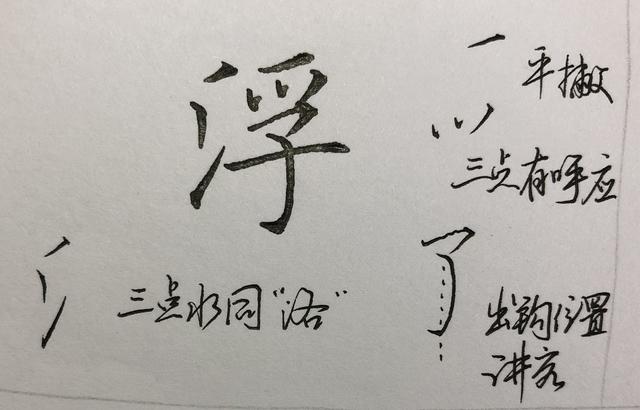 浮
平撇
三点有呼应
三点水同"洛"
出钩位置
讲究